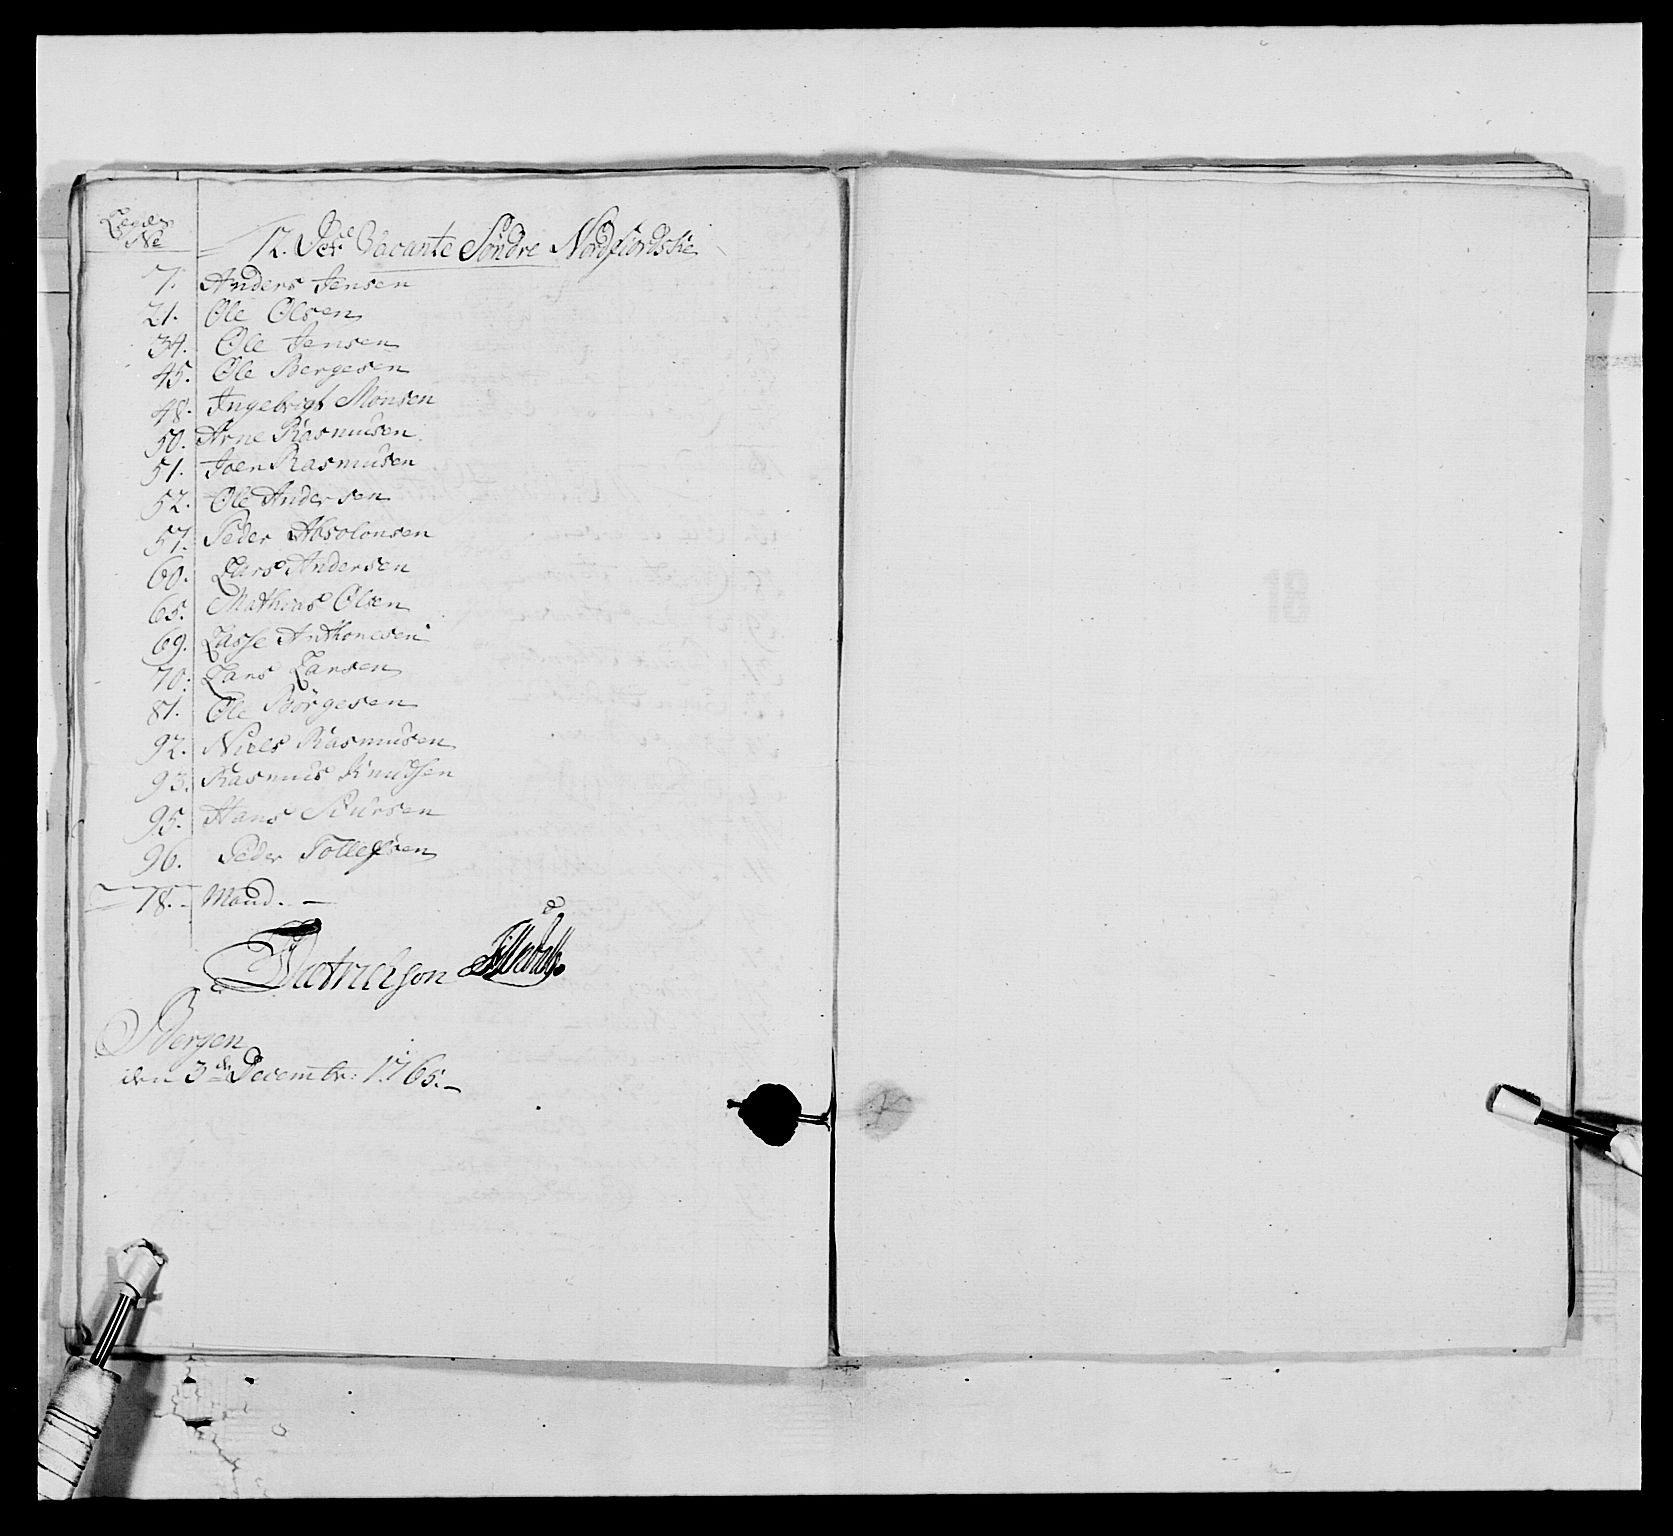 Legds
No
12. Det Vacante Söndre Nordfiordske
7. Anders Jensen
21. Ole Olsen
34. Ole Jensen
45. Ole Bergesen
48. Ingebrigt Monsen
50. Arne Rasmusen
51. Joen Rasmusen
52. Ole Andersen
57. Peder Absolonsen
60. Lars Andersen
65. Mathias Olsen
69. Lasse Anthonesen
70. Lars Larsen
81. Ole Börgesen
92. Niels Rasmusen
93. Rasmus Knudsen
95. Hans Siursen
96. Peder Tollefsen
18. Mand.
Bergen
den 3de Decembr: 1765.